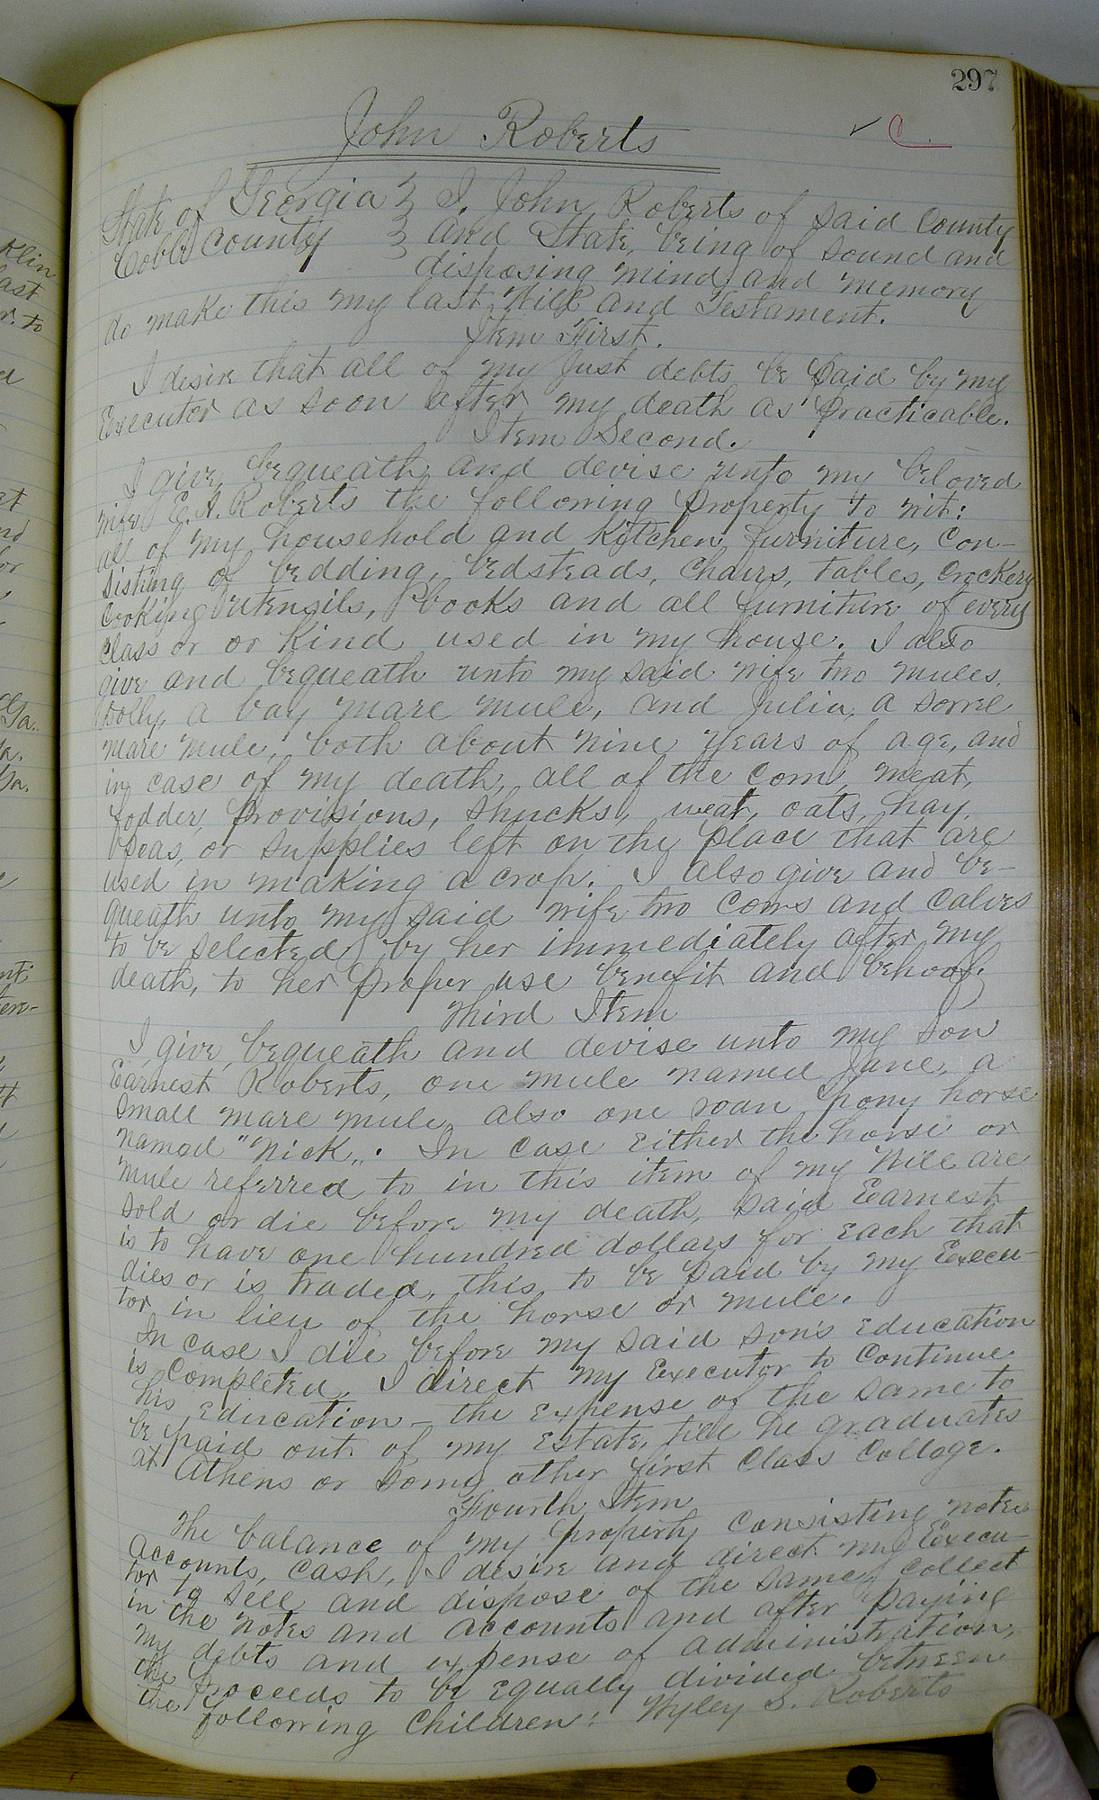 297
John Roberts
✓ C.
State of Georgia } I, John Roberts of said County
Cobb County } and State, being of sound and
disposing mind and memory
do make this my last Will and Testament.
Item First.
I desire that all of my just debts be paid by my
Executor as soon after my death as practicable.
Item Second.
I give, bequeath and devise unto my beloved
wife E.A. Roberts the following property to wit:
all of my household and Kitchen furniture, Con-
sisting of bedding, bedsteads, Chairs, tables, Crockery
Cooking utensils, books and all furniture of every
Class or or Kind used in my house. I also
give and bequeath unto my said wife two mules,
Dolly, a bay mare mule, and Julia, a sorrel
mare mule, both about nine years of age, and
in case of my death, all of the corn, meat,
fodder, provisions, shucks, weat, oats, hay,
peas, or supplies left on the place that are
used in making a crop. I also give and be-
queath unto my said wife two Cows and Calves
to be selected by her immediately after my
death, to her proper use benefit and behoof.
Third Item
I give, bequeath and devise unto my son
Earnest Roberts, one mule named Jane, a
small mare mule, also one roan pony horse
named "Nick". In case either the horse or
mule referred to in this item of my Will are
sold or die before my death, said Earnest
is to have one hundred dollars for each that
dies or is traded, this to be paid by my Execu-
tor in lieu of the horse or mule.
In case I die before my said son's education
is Completed, I direct my Executor to Continue
his education - the expense of the same to
be paid out of my estate, till he graduates
at Athens or some other first Class Collage.
Fourth Item
The balance of my property consisting notes
accounts, Cash, I desire and direct my Execu-
tor to sell and dispose of the same, collect
in the notes and accounts and after paying
my debts and expense of administration,
the proceeds to be equally divided between
the following Children: Wyley S. Roberts
Klin
last
r. to
Ga.